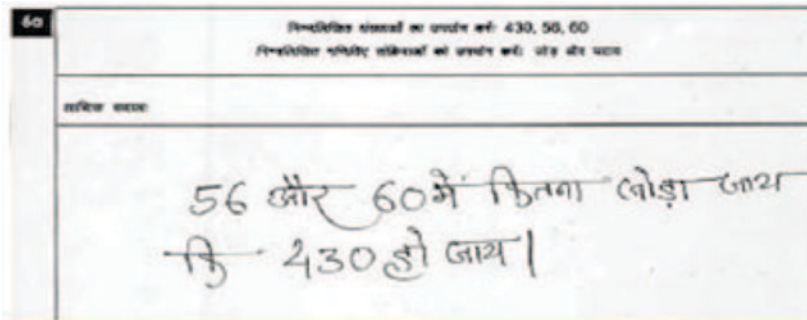 60
निम्नलिखित संख्याओं का उपयोग करें: 430, 56, 60
निम्नलिखित गणितीय संक्रियाओं का उपयोग करें: जोड़ और घटाव
शाब्दिक सवाल:
56 और 60 में कितना जोड़ा जाय
कि 430 हो जाय।